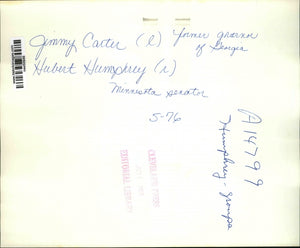 Jimmy Carter (l) former governor
of Georgia
Hubert Humphrey (r)
Minnesota senator
5-76
A14799
Humphrey-Groups
EDITORIAL LIBRARY